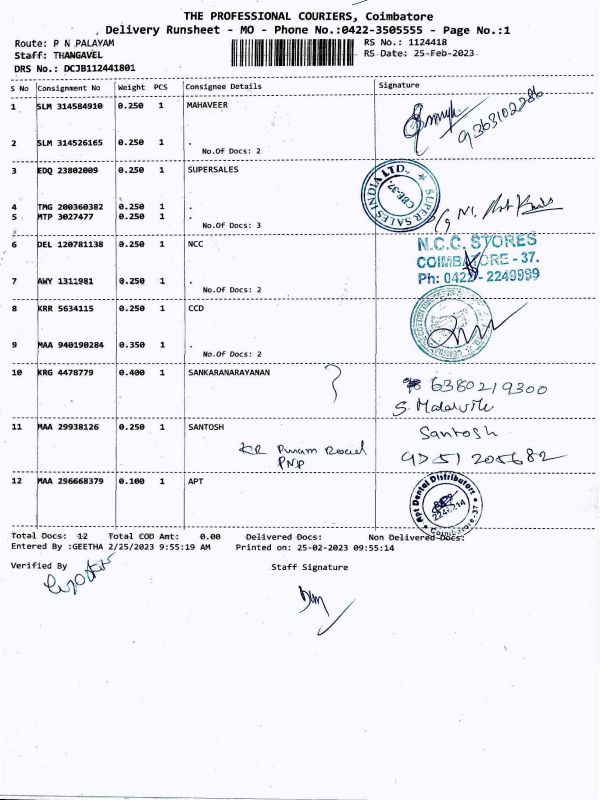 THE PROFESSIONAL COURIERS, Coimbatore
Delivery Runsheet - MO - Phone No.:0422-3505555 - Page No.:1
Route: P N PALAYAM
RS No.: 1124418
Staff: THANGAVEL
RS Date: 25-Feb-2023
DRS No.: DCJB112441801
S No Consignment No Weight PCS Consignee Details Signature
1 SLM 314584910 0.250 1 MAHAVEER
9363102286
2 SLM 314526165 0.250 1 .
No.Of Docs: 2
3 EDQ 23802009 0.250 1 SUPERSALES
SUPER SALES INDIA LTD., CBE-37
4 TMG 200360382 0.250 1 .
5 MTP 3027477 0.250 1 .
No.Of Docs: 3
6 DEL 120781138 0.250 1 NCC
N.C.C. STORES
COIMBATORE - 37.
Ph: 0422 - 2249999
7 AWY 1311981 0.250 1 .
No.Of Docs: 2
8 KRR 5634115 0.250 1 CCD
9 MAA 940190284 0.350 1 .
No.Of Docs: 2
10 KRG 4478779 0.400 1 SANKARANARAYANAN
6380219300
11 MAA 29938126 0.250 1 SANTOSH
Santosh
PNP
9051205682
12 MAA 296668379 0.100 1 APT
Apt Dental Distributors
Coimbatore-37
Total Docs: 12 Total COD Amt: 0.00 Delivered Docs: Non Delivered Docs:
Entered By :GEETHA 2/25/2023 9:55:19 AM Printed on: 25-02-2023 09:55:14
Verified By
Staff Signature